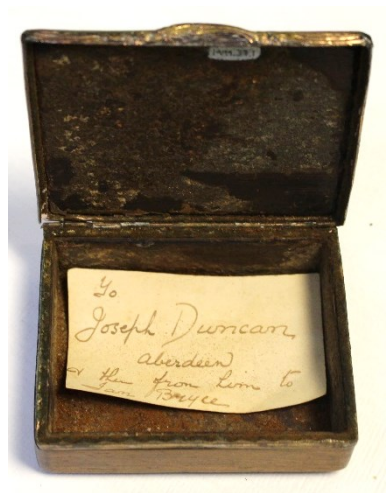 1994.37.1
To
Joseph Duncan
aberdeen
& then from him to
Ian Bryce